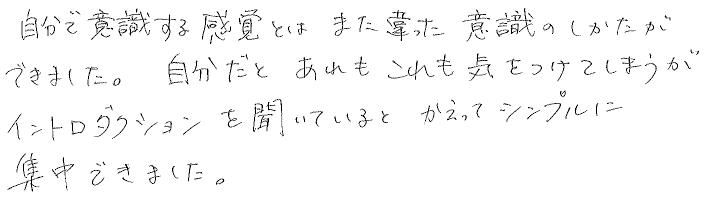 自分で意識する感覚とは また違った 意識のしかたが
できました。 自分だと あれも これも 気をつけてしまうが
イントロダクション を聞いていると かえって シンプルに
集中できました。